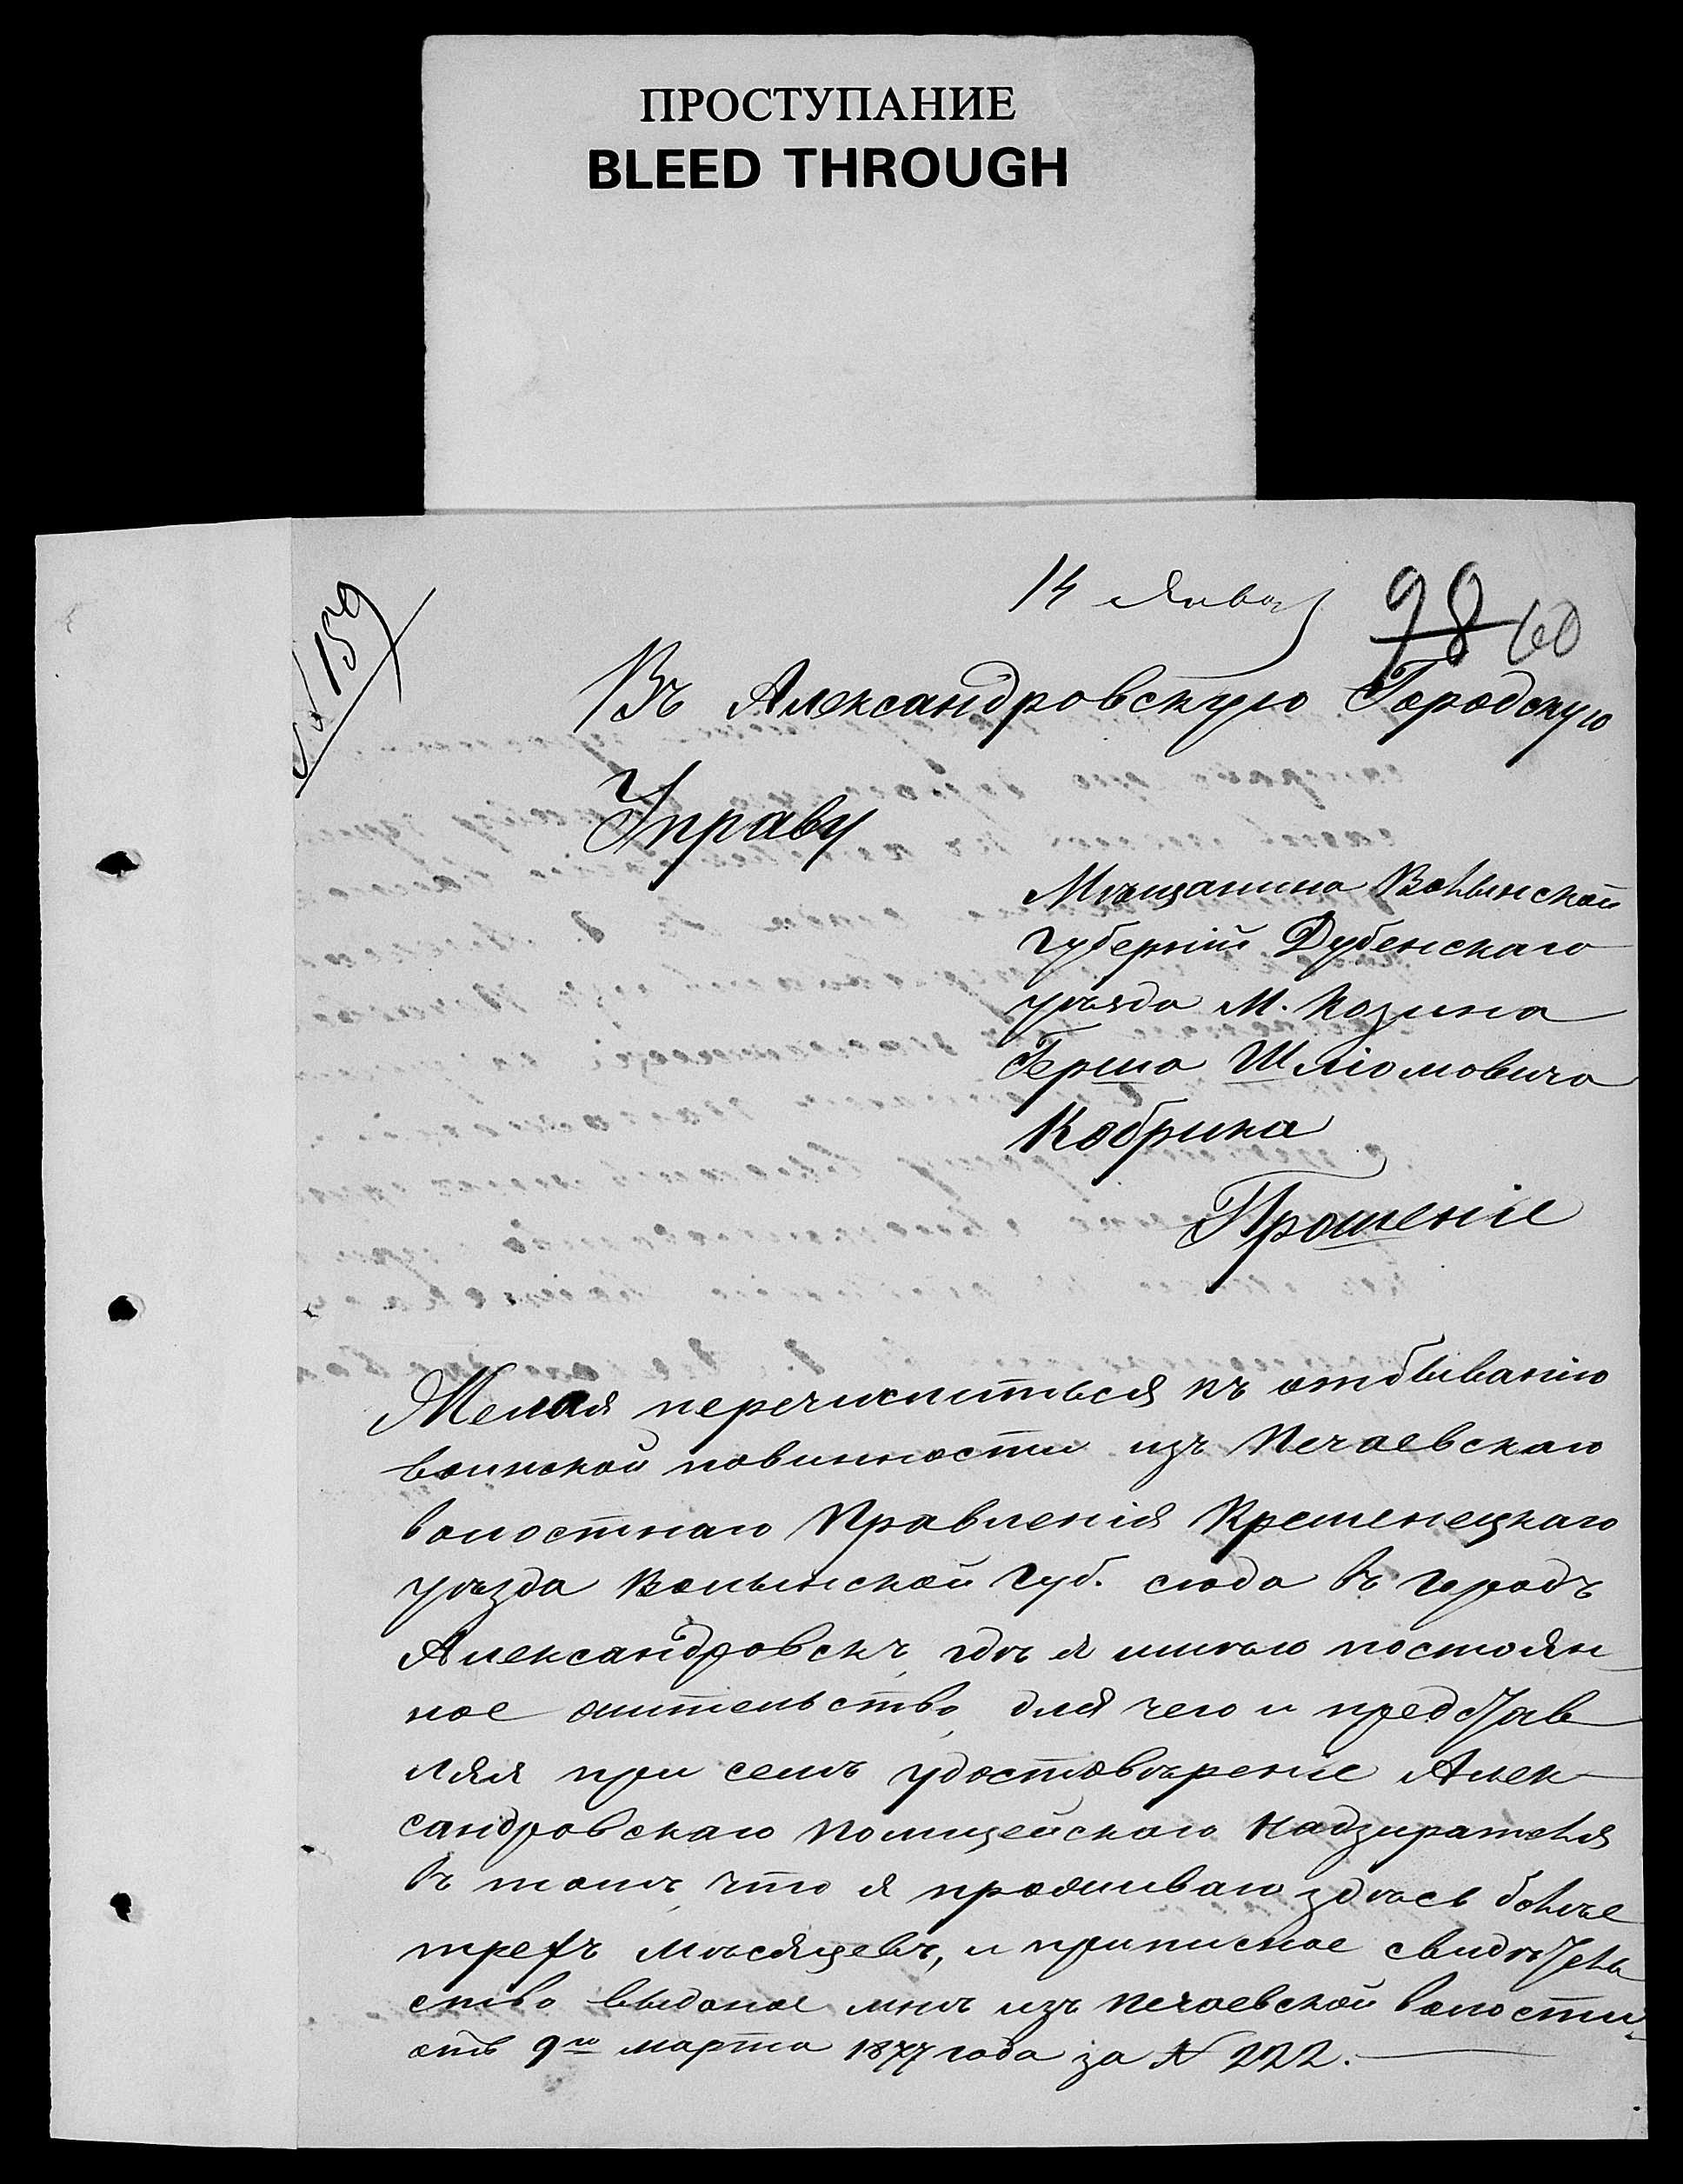 ПРОСТУПАНИЕ
BLEED THROUGH
14 Янва
98 60
№ 159
Въ Александровскую Городскую
Управу
Мѣщанина Волынской
губерніи Дубенскаго
уѣзда М. Козина
Герша Шліомовича
Кобрина
Прошеніе
Желая перечислиться къ отбыванію
воинской повинности изъ Почаевскаго
волостнаго Правленія Кременецкаго
уѣзда Волынской губ. сюда въ городъ
Александровскъ, гдѣ я имѣю постоян
ное жительство, для чего и представ
ляя при семъ удостовѣреніе Алек
сандровскаго Полицейскаго Надзирателя
въ томъ, что я проживаю здѣсь болѣе
трехъ мѣсяцевъ, и приписное свидѣтель
ство выданое мнѣ изъ Почаевской волости
отъ 9го марта 1877 года за № 222.